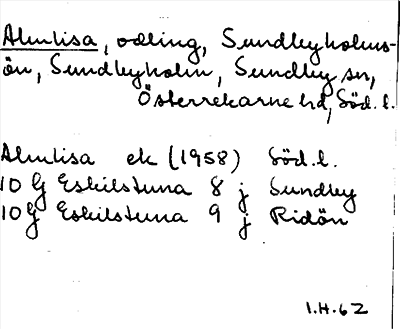 Almlisa, odling, Sundbyholms-
ön, Sundbyholm, Sundby sn,
Österrekarne hd, Söd. l.
Almlisa ek (1958) Söd. l.
10 G Eskilstuna 8 j Sundby
10 G Eskilstuna 9 j Ridön
I.H.62